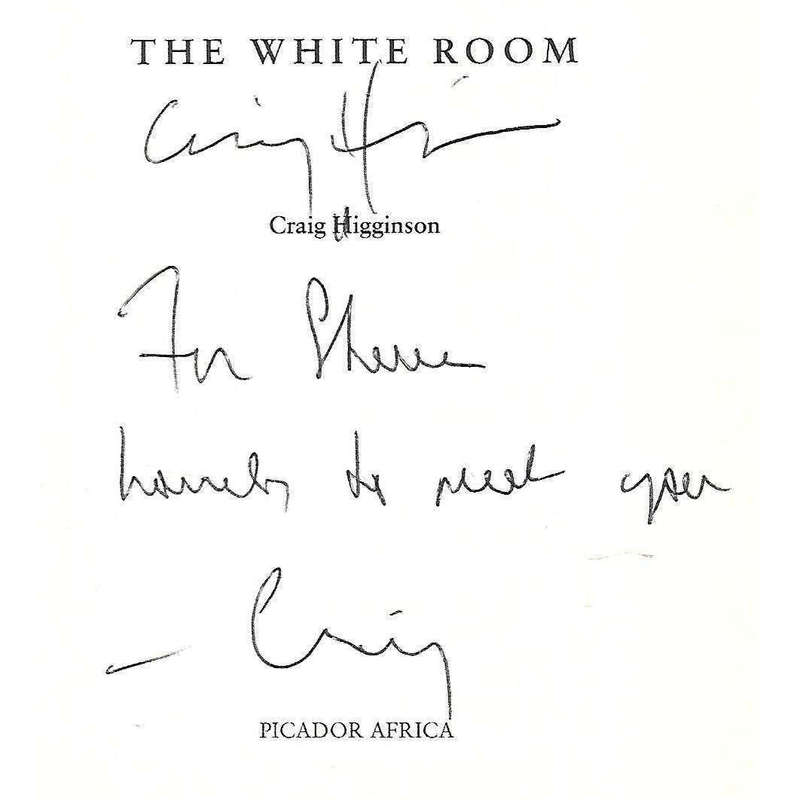 THE WHITE ROOM
Craig H
Craig Higginson
For
to meet you
– Craig
PICADOR AFRICA